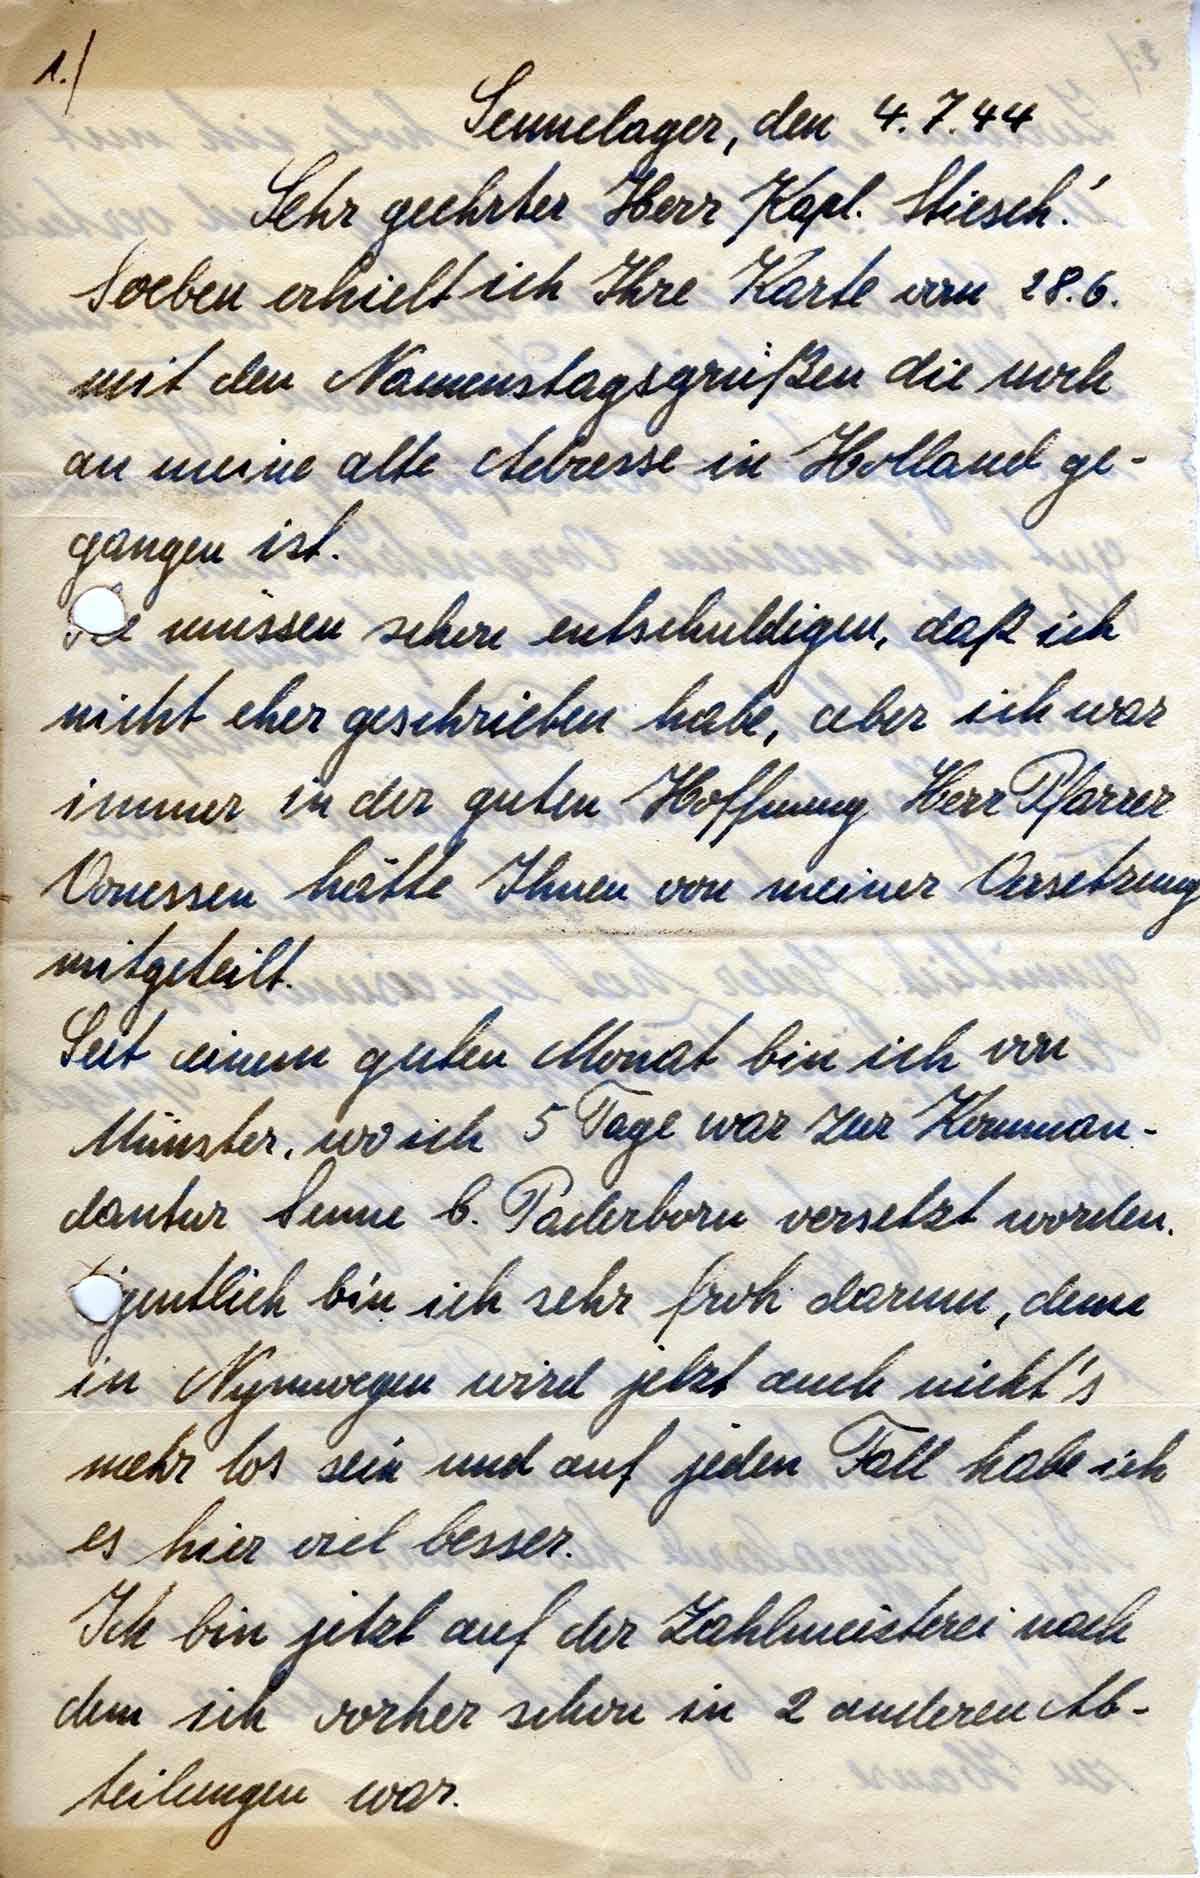 1.)
Sennelager, den 4.7.44
Sehr geehrter Herr Kapl. Stiesch!
Soeben erhielt ich Ihre Karte vom 28.6.
mit den Namenstagsgrüßen die noch
an meine alte Adresse in Holland ge-
gangen ist.
Sie müssen schon entschuldigen, daß ich
nicht eher geschrieben habe, aber ich war
immer in der guten Hoffnung Herr Pfarrer
Vonessen hätte Ihnen von meiner Versetzung
mitgeteilt.
Seit einem guten Monat bin ich von
Münster, wo ich 5 Tage war zur Komman-
dantur Senne b. Paderborn versetzt worden.
Eigentlich bin ich sehr froh darum, denn
in Nymwegen wird jetzt auch nicht's
mehr los sein und auf jeden Fall habe ich
es hier viel besser.
Ich bin jetzt auf der Zahlmeisterei nach
dem ich vorher schon in 2 anderen Ab-
teilungen war.